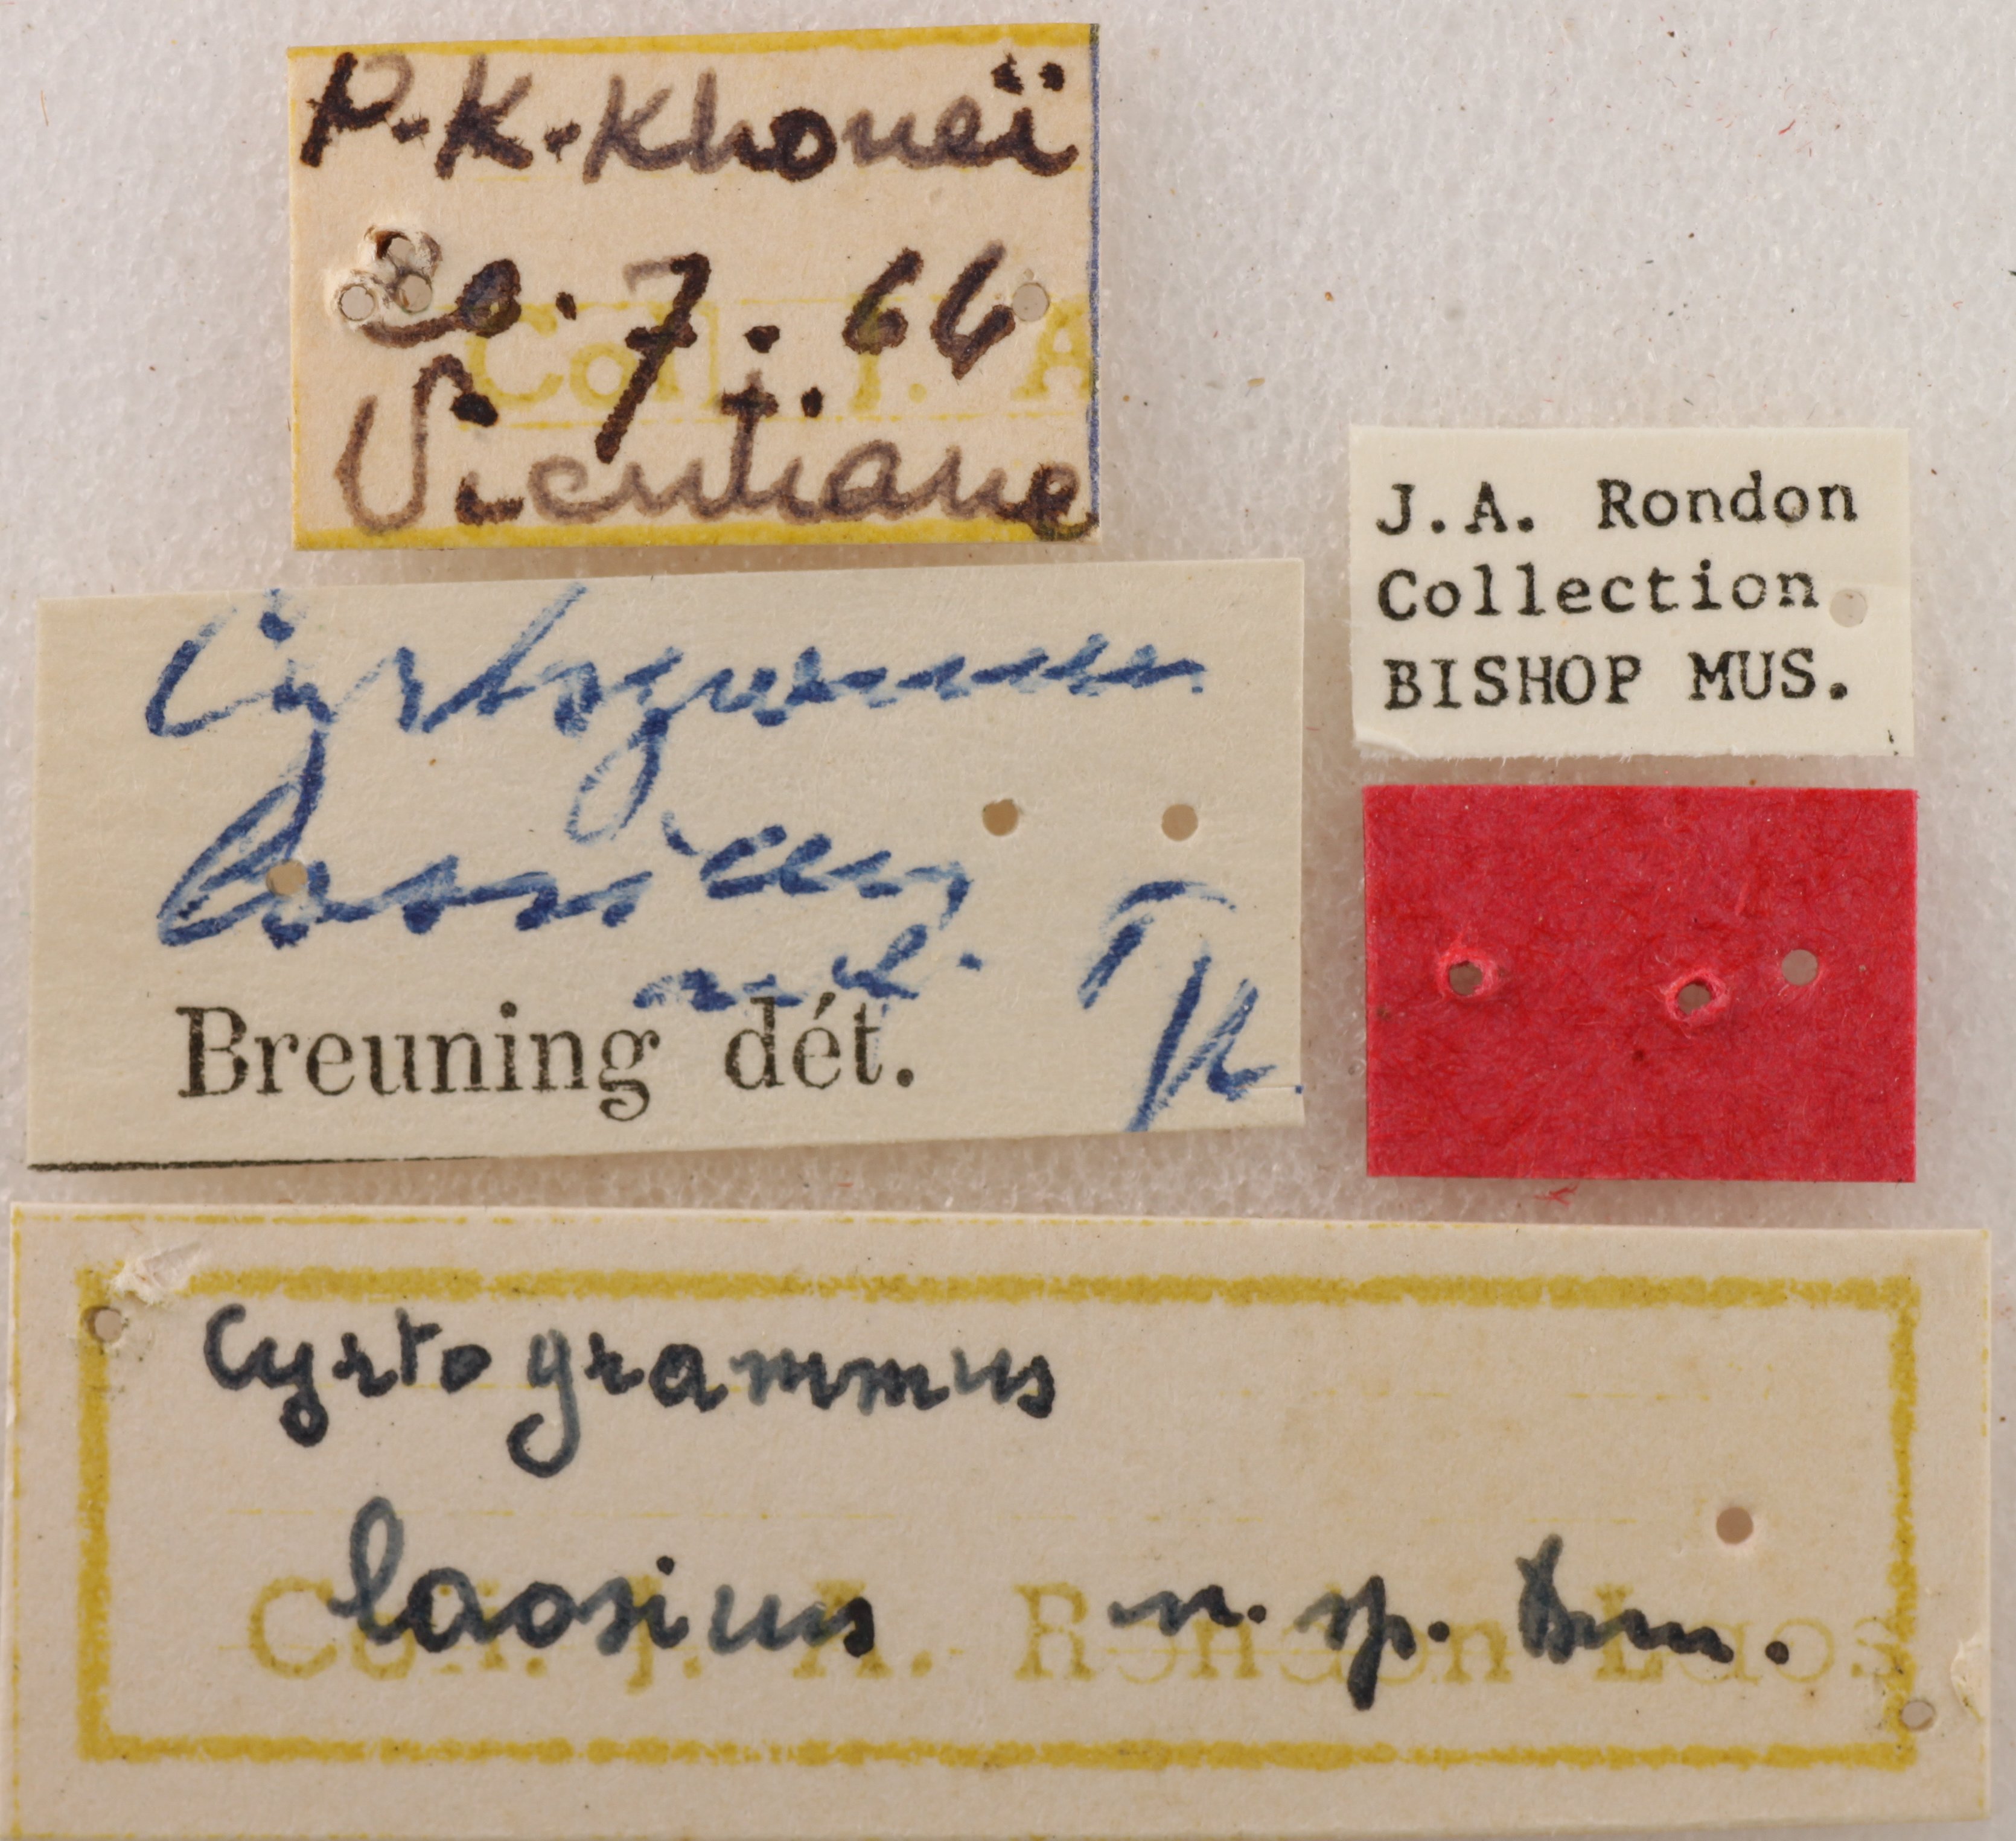 P.K.Khoueï
20.7.64
Vientiane
Cyrtogrammus
laosicus
Breuning dét.
J.A. Rondon
Collection
BISHOP MUS.
Cyrtogrammus
laosicus n. sp. Breun.
Coll. J. A. Rondon Laos